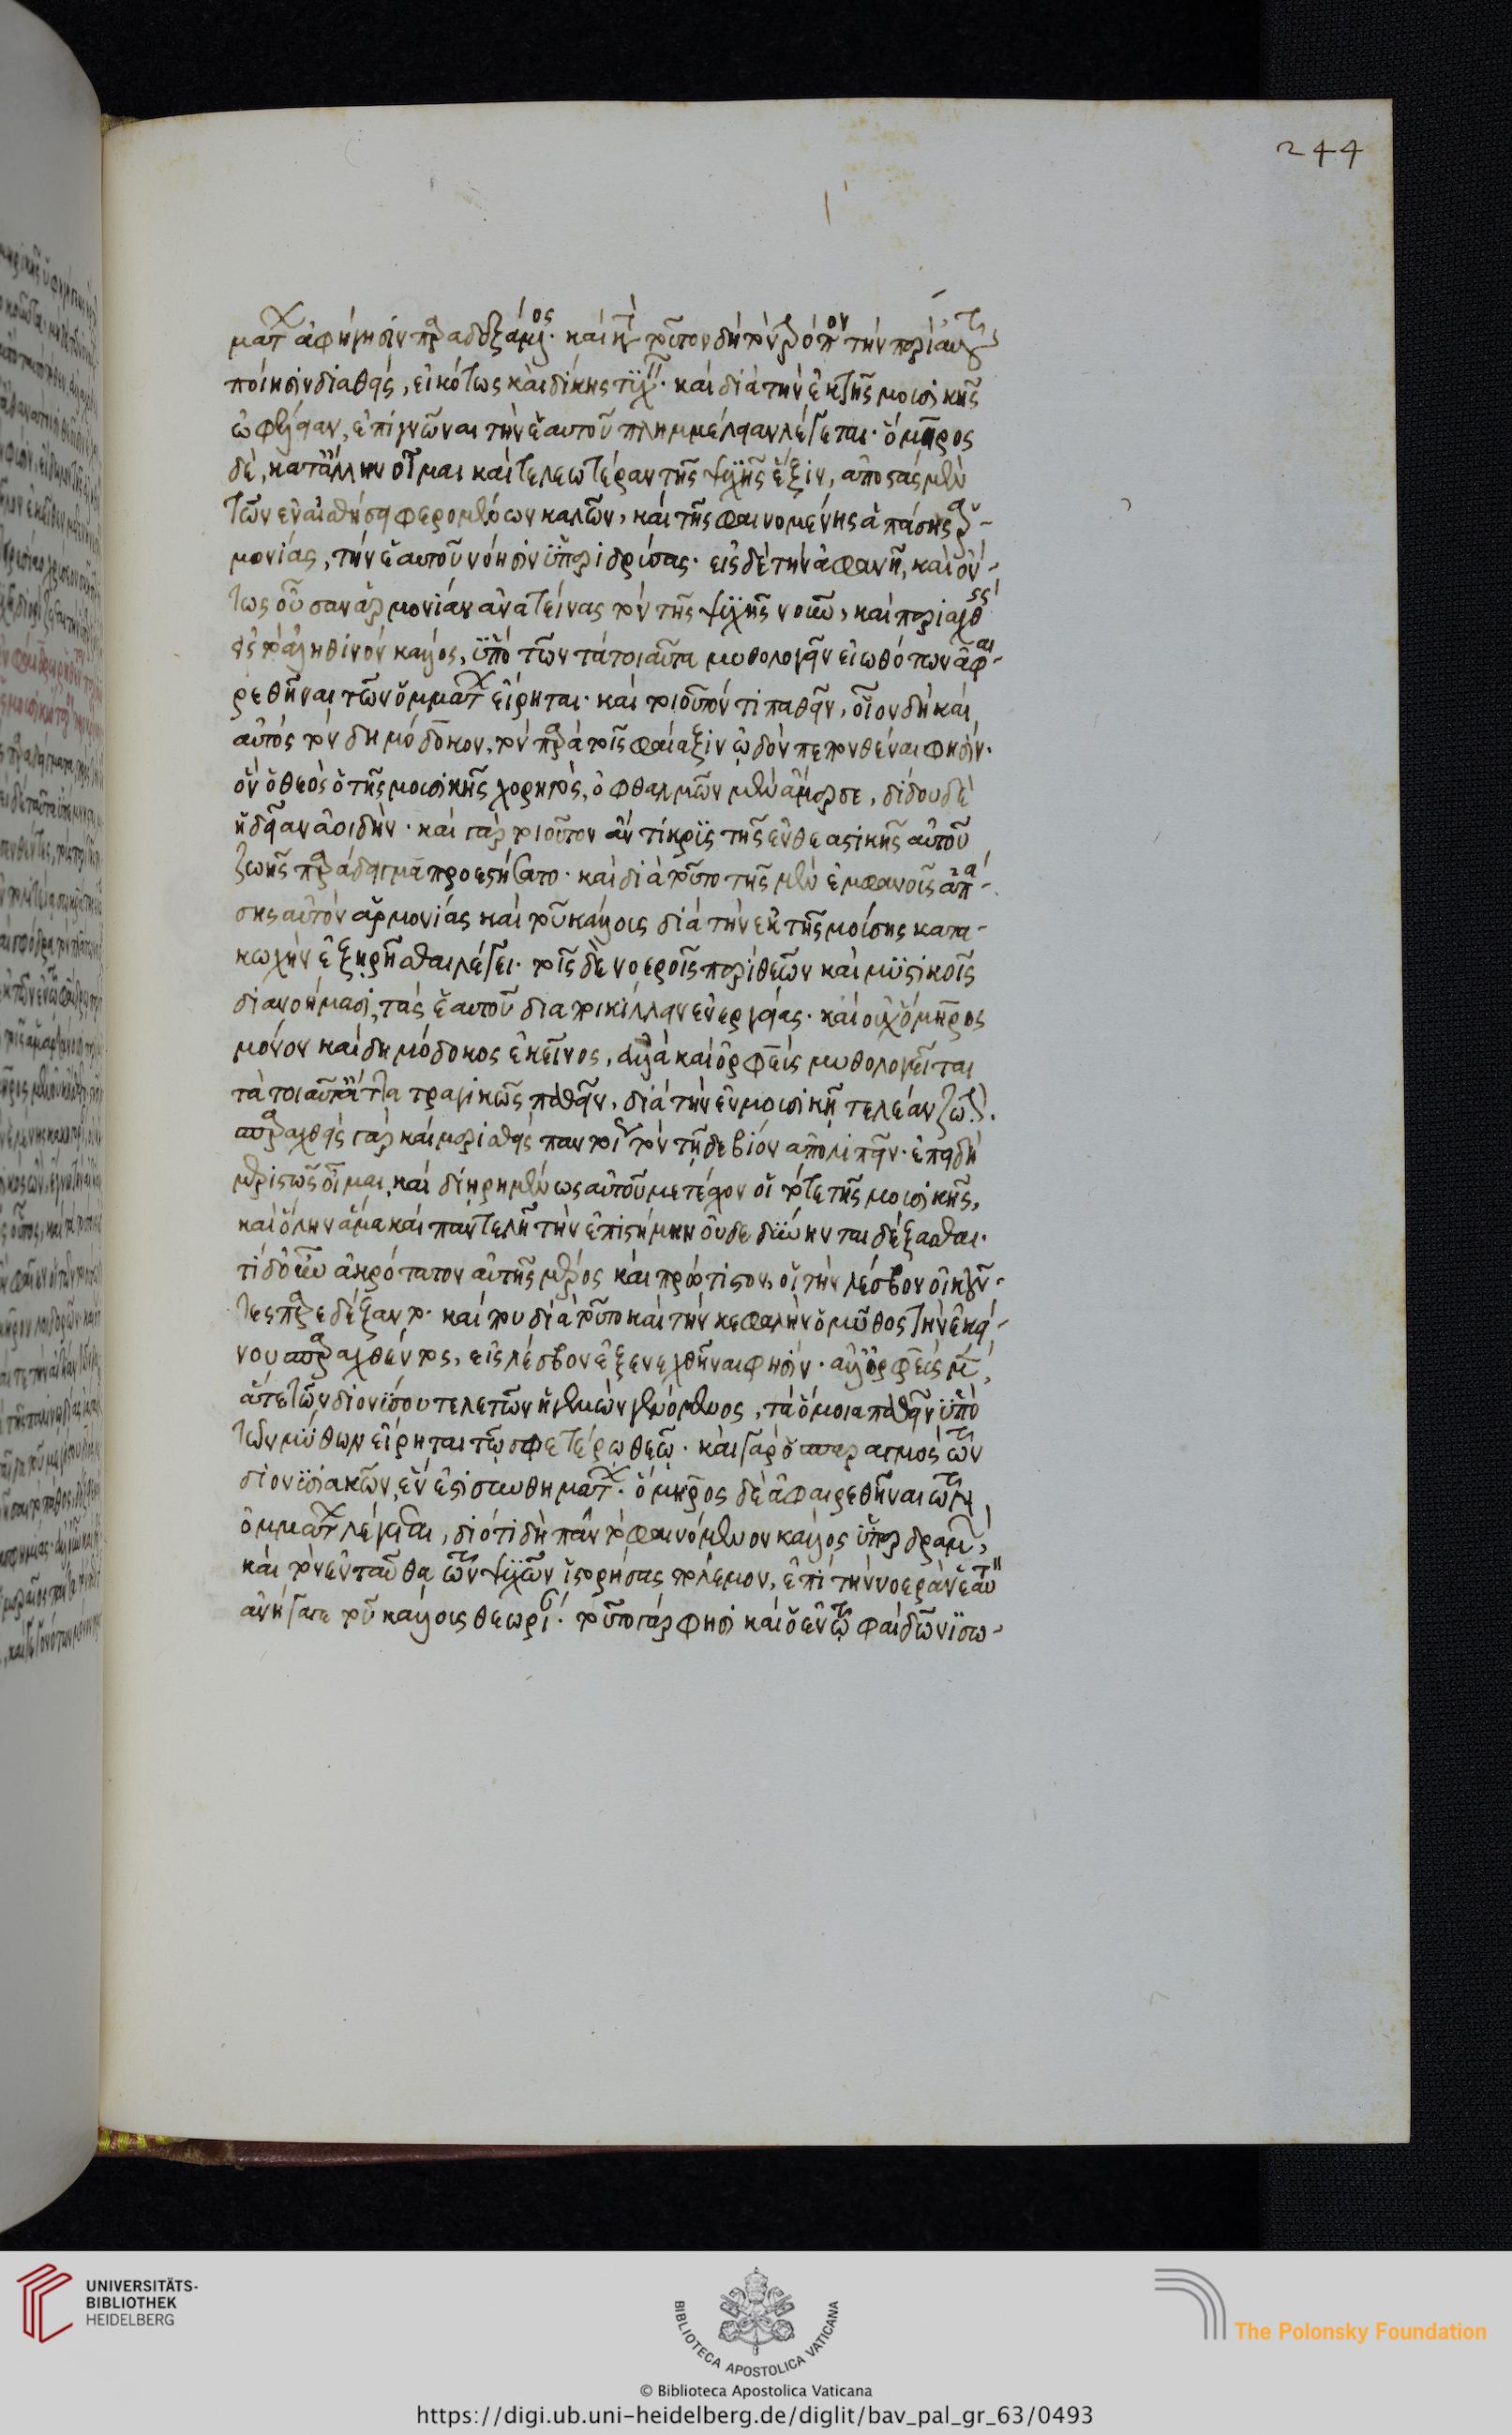 244
μάτων ἀφήγησιν παραδεξάμενος· καὶ κατὰ τοῦτον δὴ τὸν τρόπον τὴν περὶ αὐτῆς
ποίησιν διαθείς, εἰκότως καὶ δίκης τυχεῖν· καὶ διὰ τὴν ἐκ τῆς μουσικῆς
ὠφέλειαν, ἐπιγνῶναι τὴν ἑαυτοῦ πλημμέλειαν λέγεται· ὅμηρος
δὲ, κατ' ἄλλην οἶμαι καὶ τελεωτέραν τῆς ψυχῆς ἕξιν, ἀποστὰς μὲν
τῶν ἐν αἰσθήσει φερομένων καλῶν, καὶ τῆς φαινομένης ἁπάσης ἁρ-
μονίας, τὴν ἑαυτοῦ νόησιν ὑπεριδρύσας· εἰς δὲ τὴν ἀφανῆ, καὶ ὄν-
τως οὖσαν ἁρμονίαν ἀνατείνας τὸν τῆς ψυχῆς νοῦν, καὶ περιαχθεὶς
εἰς τὸ ἀληθινὸν κάλλος, ὑπὸ τῶν τὰ τοιαῦτα μυθολογεῖν εἰωθότων ἀφαι-
ρεθῆναι τῶν ὀμμάτων εἴρηται· καὶ τοιοῦτόν τι παθεῖν, οἷον δὴ καὶ
αὐτὸς τὸν δημόδοκον, τὸν παρὰ τοῖς φαίαξιν ᾠδὸν πεπονθέναι φησίν.
ὃν ὁ θεὸς ὁ τῆς μουσικῆς χορηγὸς, ὀφθαλμῶν μὲν ἄμερσε, δίδου δὲ
ἡδεῖαν ἀοιδήν· καὶ γὰρ τοιοῦτον ἀντίκρυς τῆς ἐνθεαστικῆς αὐτοῦ
ζωῆς παράδειγμα προεστήσατο· καὶ διὰ τοῦτο τῆς μὲν ἐμφανοῦς ἁπά-
σης αὐτὸν ἁρμονίας καὶ τοῦ κάλλους διὰ τὴν ἐκ τῆς μούσης κατα-
κωχὴν ἐξῃρῆσθαι λέγει· τοῖς δὲ νοεροῖς περὶ θεῶν καὶ μυστικοῖς
διανοήμασι, τὰς ἑαυτοῦ διαποικίλλειν ἐνεργείας· καὶ οὐχ ὅμηρος
μόνον καὶ δημόδοκος ἐκεῖνος, ἀλλὰ καὶ ὀρφεὺς μυθολογεῖται
τὰ τοιαῦτα ἄττα τραγικῶς παθεῖν, διὰ τὴν ἐν μουσικῇ τελείαν ζωήν.
σπαραχθεὶς γὰρ καὶ μερισθεὶς παντοίως τὸν τῇδε βίον ἀπολιπεῖν· ἐπειδὴ
μεριστῶς οἶμαι, καὶ διῃρημένως αὐτοῦ μετέσχον οἱ τότε τῆς μουσικῆς,
καὶ ὅλην ἅμα καὶ παντελῆ τὴν ἐπιστήμην οὐδὲ δύνηνται δέξασθαι·
τὸ δ' οὖν ἀκρότατον αὐτῆς μέρος καὶ πρώτιστον, οἱ τὴν λέσβον οἰκοῦν-
τες παρεδέξαντο· καί που διὰ τοῦτο καὶ τὴν κεφαλὴν ὁ μῦθος τὴν ἐκεί-
νου σπαραχθέντος, εἰς λέσβον ἐξενεχθῆναι φησίν· ἀλλ' ὀρφεὺς μὲν,
ἅτε τῶν διονύσου τελετῶν ἡγεμὼν γενόμενος, τὰ ὅμοια παθεῖν ὑπὸ
τῶν μύθων εἴρηται τῷ σφετέρῳ θεῷ· καὶ γὰρ ὁ σπαραγμὸς τῶν
διονυσιακῶν, ἕν ἐστι συνθημάτων· ὅμηρος δὲ ἀφαιρεθῆναι τῶν
ὀμμάτων λέγεται, διότι δὴ πᾶν τὸ φαινόμενον κάλλος ὑπερδραμὼν,
καὶ τὸν ἐνταῦθα τῶν ψυχῶν ἱστορήσας πόλεμον, ἐπὶ τὴν νοερὰν ἑαυτὸν
ἀνήγαγε τοῦ κάλλους θεωρίαν· τοῦτο γάρ φησι καὶ ὁ ἐν τῷ φαίδωνι σω-
UNIVERSITÄTS-
BIBLIOTHEK
HEIDELBERG
BIBLIOTECA APOSTOLICA VATICANA
The Polonsky Foundation
© Biblioteca Apostolica Vaticana
https://digi.ub.uni-heidelberg.de/diglit/bav_pal_gr_63/0493